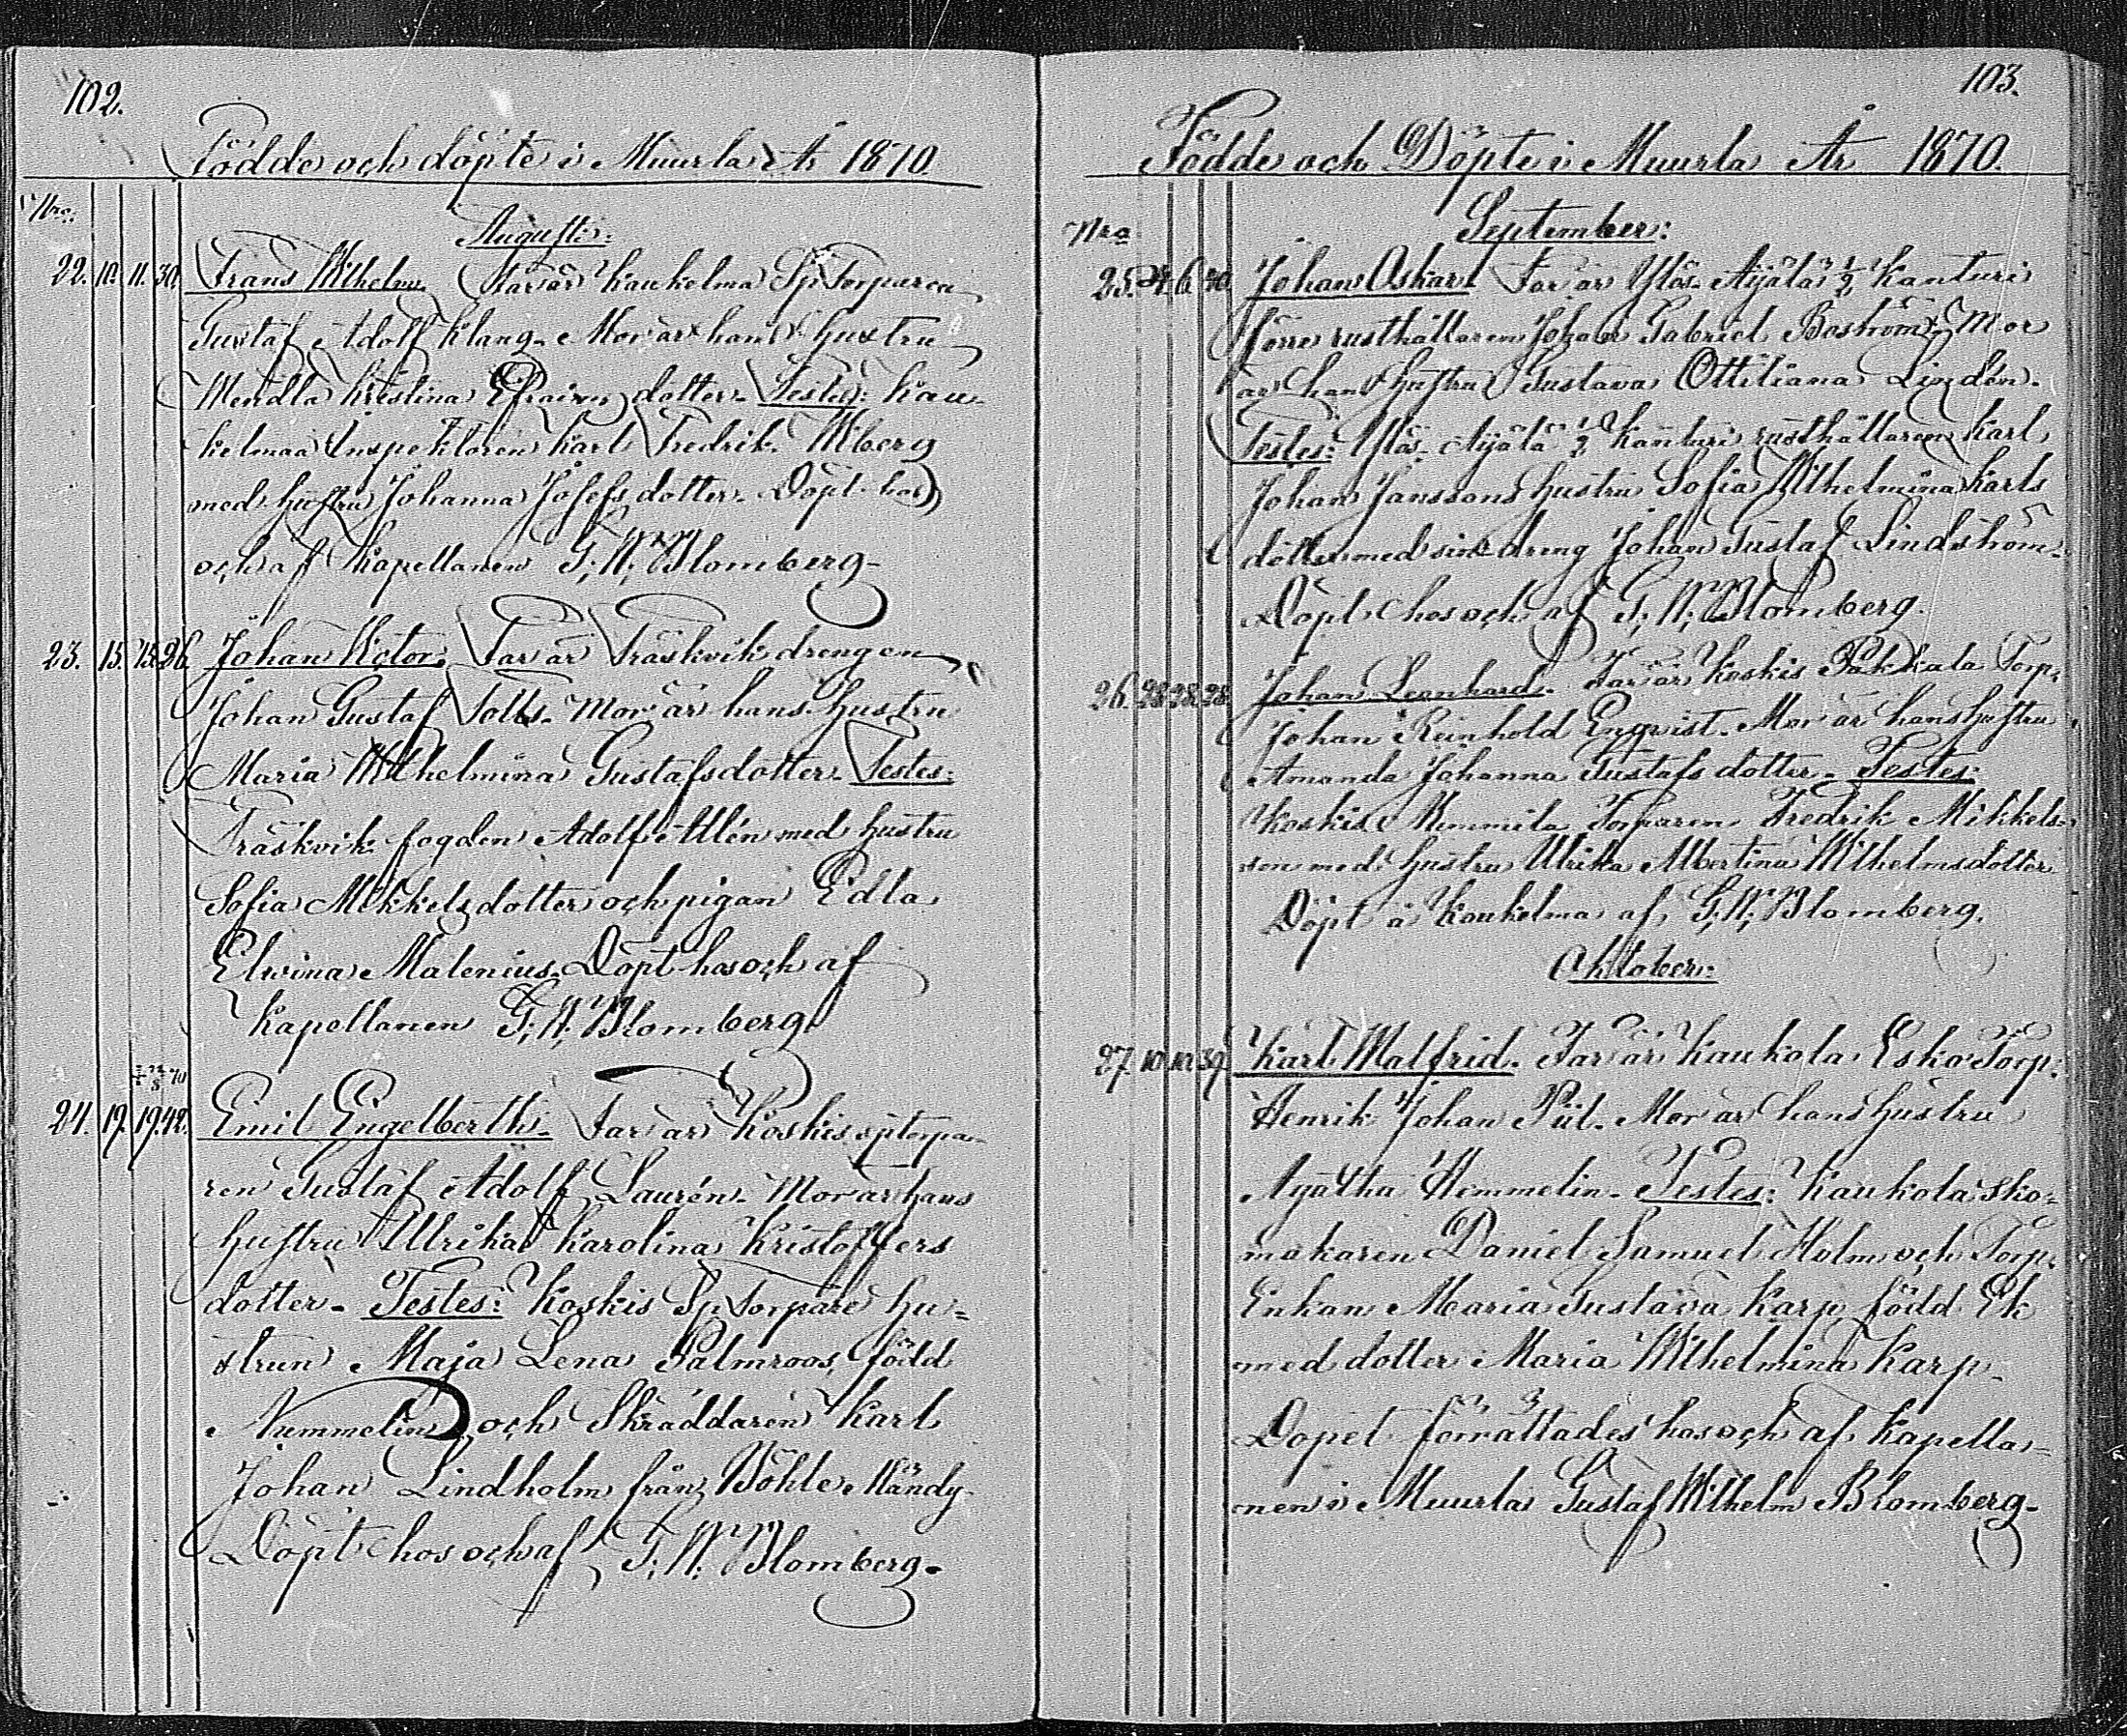 102.
Födde och döpte i Muurla År 1870.
Nro.
Augusti:
22. 10. 11. 30. Frans Wilhelm. Far är Kaukelma Sp. Torparen
Gustaf Adolf Klang. Mor är hans hustru
Wendla Kristina Efraims dotter. Testes: Kau-
kelmaa Inspektoren Karl Fredrik Wiberg
med hustru Johanna Josefs dotter. Döpt hos
och af Kapellanen G. W. Blomberg.
23. 15. 15. 26. Johan Victor. Far är Träskvik drengen
Johan Gustaf Mor är hans hustru
Maria Wilhelmina Gustafsdotter. Testes:
Träskvik fogden Adolf Allén med hustru
Sofia Mikkelsdotter och pigan Edla
Elvina Malenius. Döpt hos och af
Kapellanen G. W. Blomberg.
24. 19. 19. 42. Emil Engelberth. Far är Koskis sptorpa-
ren Gustaf Adolf Laurén. Mor är hans
hustru Ulrika Karolina Kristoffers
dotter. Testes: Koskis Sp Torpare hu-
strun Maja Lena Palmroos, född
Nummelin och Skräddaren Karl
Johan Lindholm från Böhle Mändy.
Döpt hos och af G. W. Blomberg.
103.
Födde och Döpte i Muurla År 1870.
September:
Nro
25. 6. Johan Oskar. Far är Ylös-Aijälä ½ Kanturi
förre rusthållaren Johan Gabriel Boström. Mor
är hans hustru Gustava Ottiliana Lindén.
Testes: Ylös-Aijälä ½ Kanturi rusthållaren Karl
Johan Janssons hustru Sofia Wilhelmina Karls
dotter med sin dreng Johan Gustaf Lindström.
Döpt hos och af G. W. Blomberg.
26. 28. 28. 28. Johan Leonhard. Far är Koskis Pakkala Torp.
Johan Reinhold Enqvist. Mor är hans hustru
Amanda Johanna Gustafs dotter. Testes:
Koskis Torparen Fredrik Mikkels-
son med hustru Ulrika Albertina Wilhelmsdotter
Döpt å Koukelma af G. W. Blomberg.
Oktober:
27. 10. 10. 39. Karl Malfrid. Far är Kaukola Esko Torp.
Henrik Johan Piil. Mor är hans hustru
Agatha Hemmelin. Testes: Kaukola sko-
makaren Daniel Samuel Holm och Torp.
Enkan Maria Gustava Karp, född Ek
med dotter Maria Wilhelmina Karp.
Dopet förrättades hos och af Kapella-
nen i Muurla Gustaf Wilhelm Blomberg.